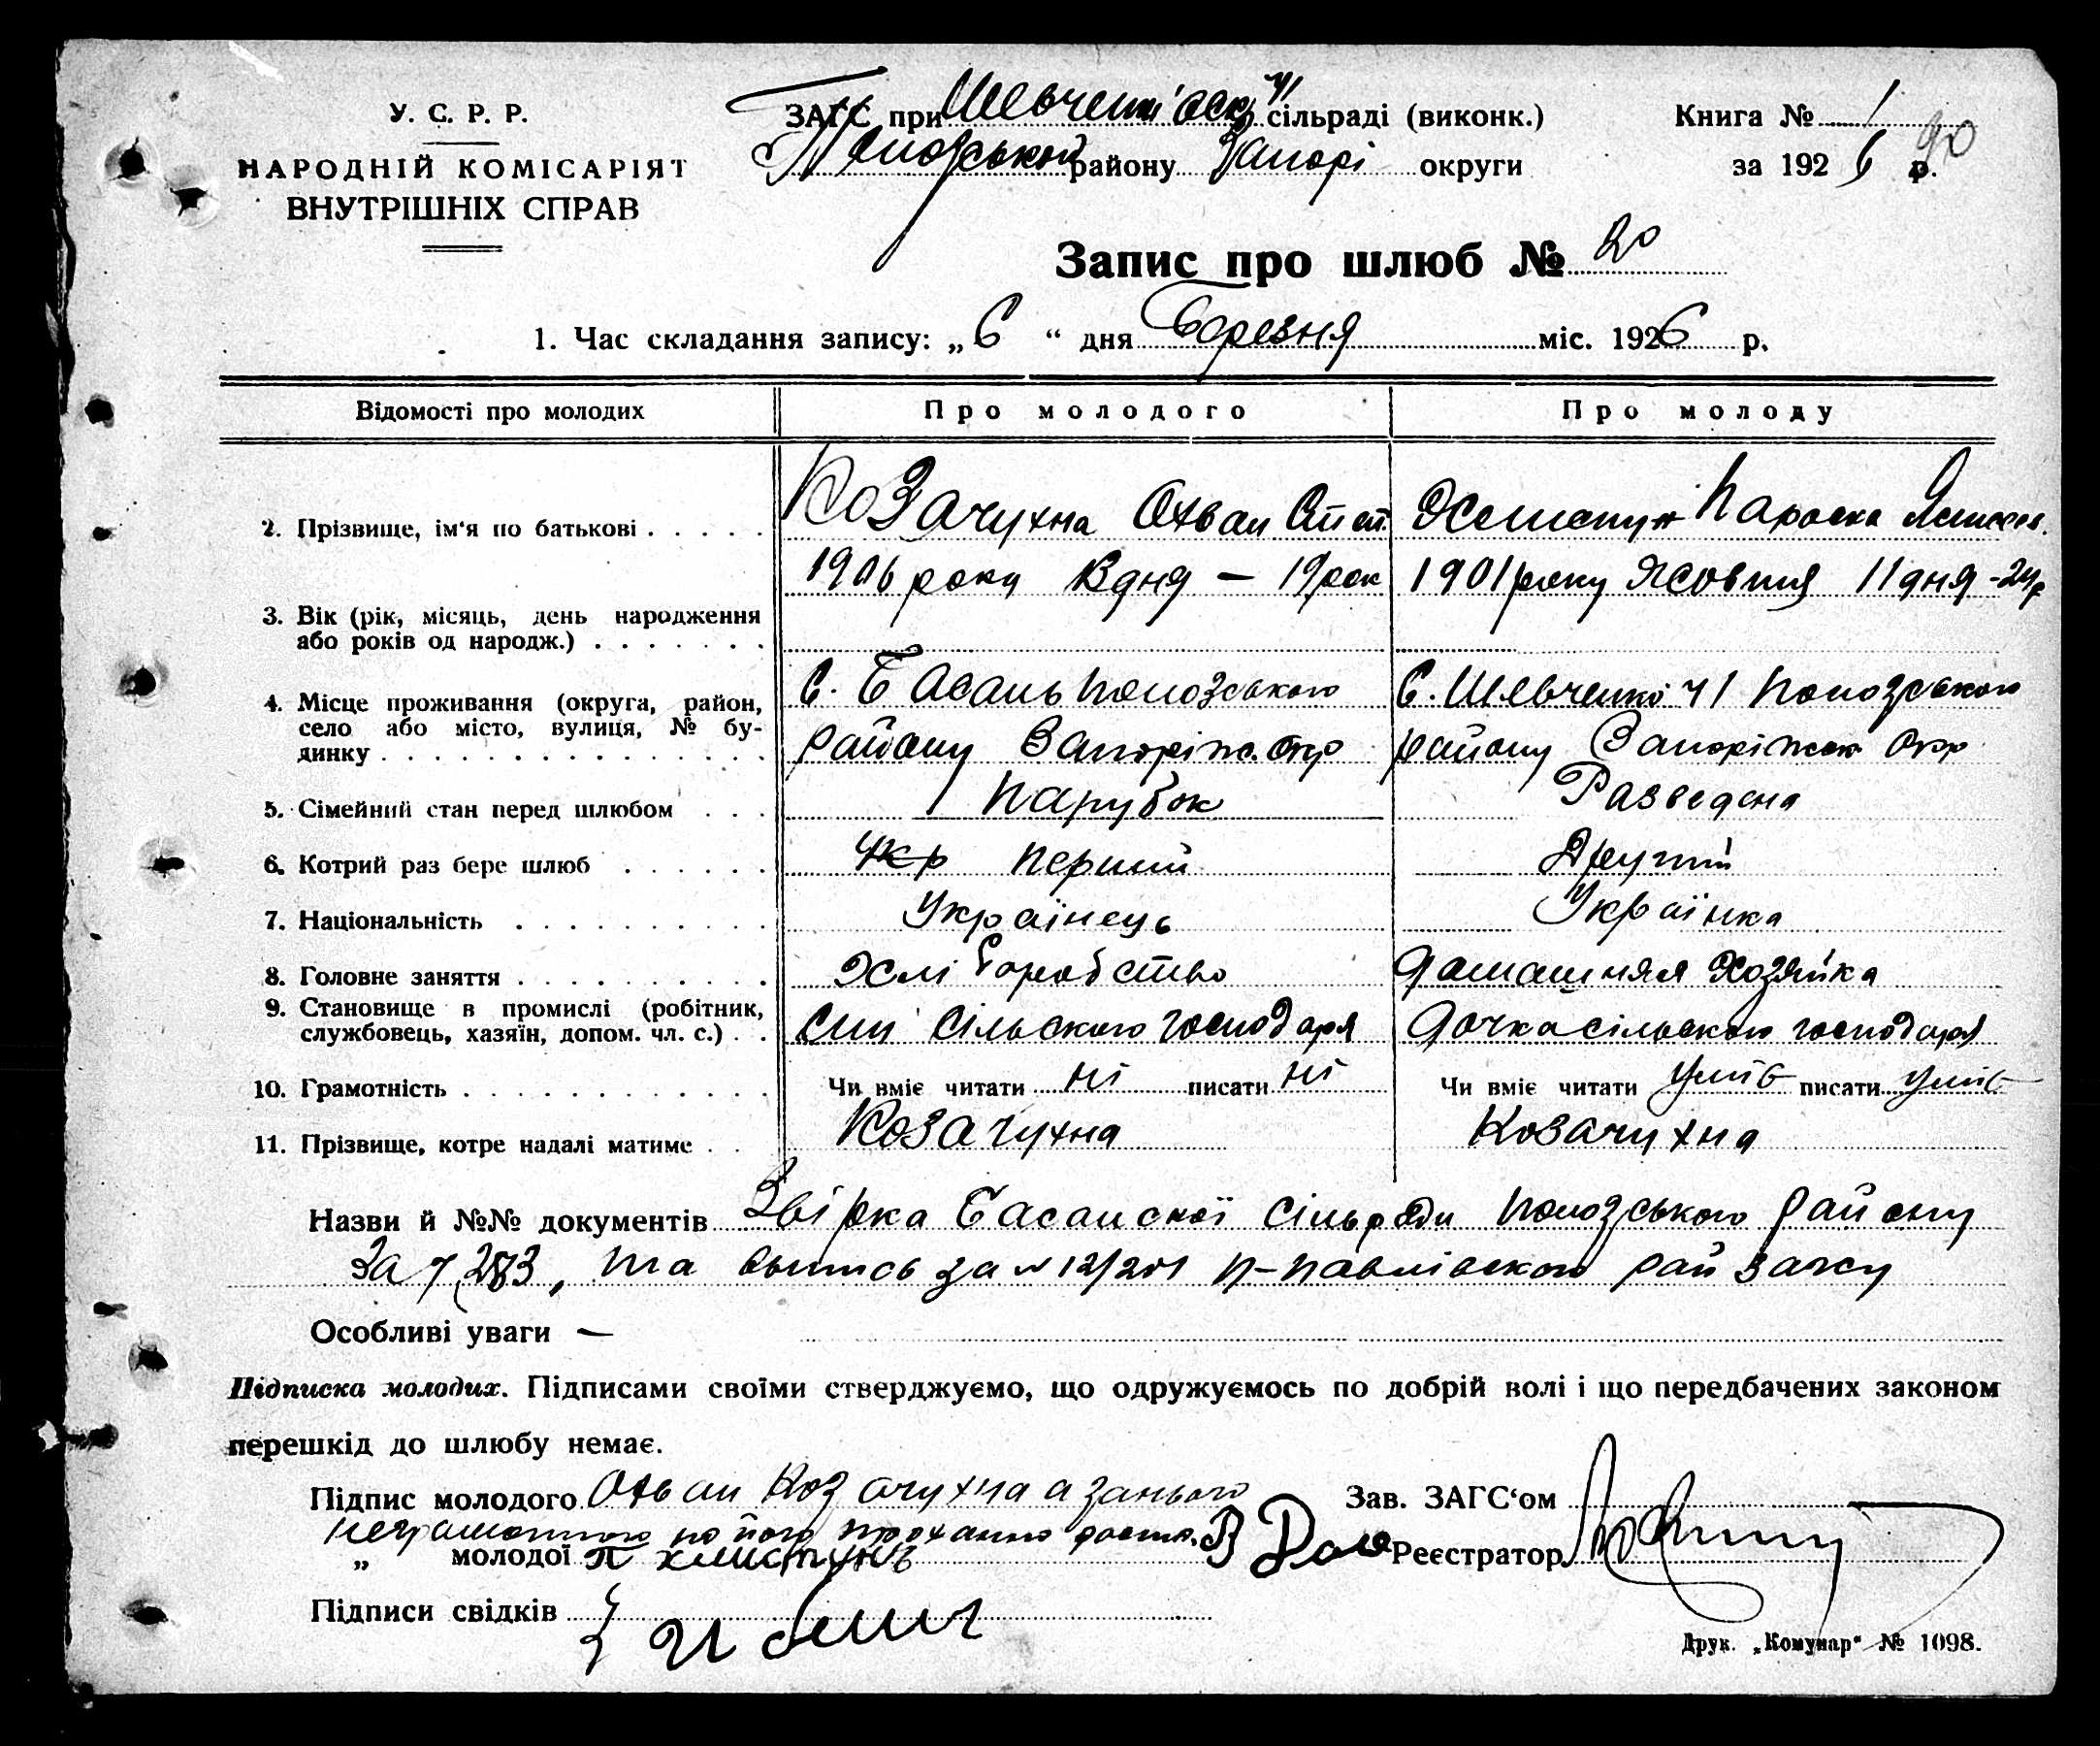 У. С. Р. Р.
НАРОДНІЙ КОМІСАРІЯТ
ВНУТРІШНІХ СПРАВ
ЗАГС при сільраді (виконк.)
району Запорі округи
Книга № 1
за 1926 р.
20
Запис про шлюб № 20
1. Час складання запису: „6“ дня Березня міс. 1926 р.
Відомості про молодих Про молодого Про молоду
2. Прізвище, ім'я по батькові . . . . . Козачухна Охван Параска
3. Вік (рік, місяць, день народження або років од народж.) . . . . . . . 1906 року дня — 19 рок 1901 року Жовтня 11 дня - 24 р
4. Місце проживання (округа, район, село або місто, вулиця, № будинку . . . . . . . . . . . . . . . с. Басань Пологзського району Запоріж. Окр с. Шевченко ч 1 Пологзського району Запоріжск Окр
5. Сімейний стан перед шлюбом . . . Парубок Разведена
6. Котрий раз бере шлюб . . . . . . Укр Перший Другий
7. Національність . . . . . . . . . . Українець Українка
8. Головне заняття . . . . . . . . . . Хліборобство Домашняя Хозяйка
9. Становище в промислі (робітник, службовець, хазяїн, допом. чл. с.) . . Син сільского господаря Дочка сільского господаря
10. Грамотність . . . . . . . . . . . . Чи вміє читати ні писати ні Чи вміє читати уміє писати уміє
11. Прізвище, котре надалі матиме . . Козачухна Козачухна
Назви й №№ документів Звірка Басанскої Сільради Пологзського Району
За 283, та выпись за № 12/201 П-Павлівского рай загсу
Особливі уваги —
Підписка молодих. Підписами своїми стверджуємо, що одружуємось по добрій волі і що передбачених законом
перешкід до шлюбу немає.
Підпис молодого Охван Козачухна а за нього
неграмотного по його проханню
„ молодої П Хлистунь
Зав. ЗАГС'ом
Реєстратор
Підписи свідків
Друк. „Комунар“ № 1098.